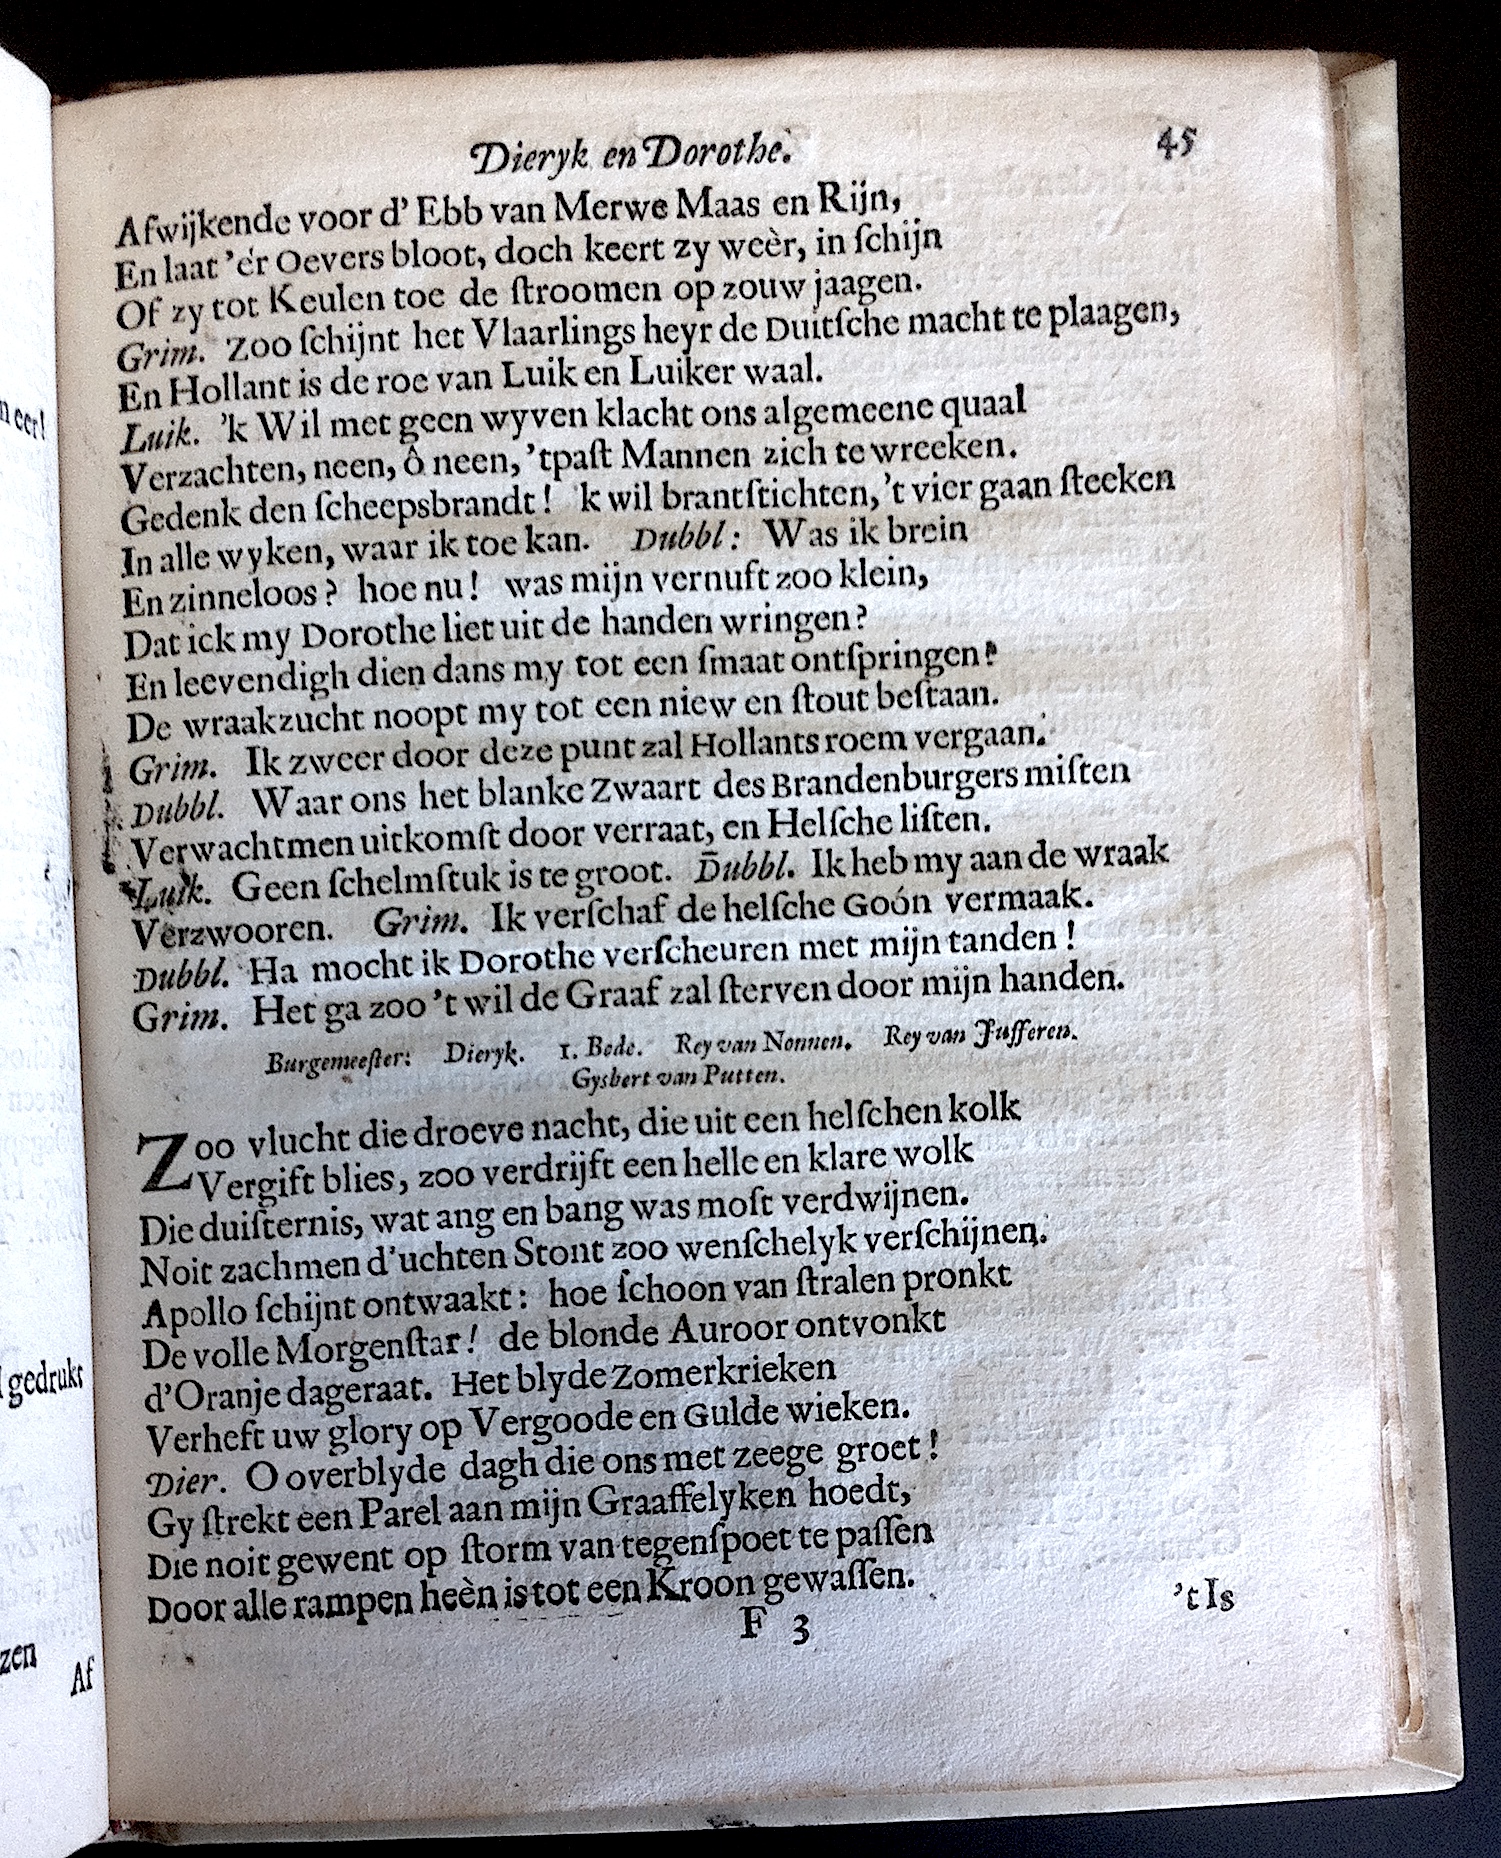 Dieryk en Dorothe. 45
Afwijkende voor d' Ebb van Merwe Maas en Rijn,
En laat 'er Oevers bloot, doch keert zy weèr, in ſchijn
Of zy tot Keulen toe de ſtroomen op zouw jaagen.
Grim. Zoo ſchijnt het Vlaarlings heyr de Duitſche macht te plaagen,
En Hollant is de roe van Luik en Luiker waal.
Luik. 'k Wil met geen wyven klacht ons algemeene quaal
Verzachten, neen, ô neen, 'tpaſt Mannen zich te wreeken.
Gedenk den ſcheepsbrandt! 'k wil brantſtichten, 't vier gaan ſteeken
In alle wyken, waar ik toe kan. Dubbl: Was ik brein
En zinneloos? hoe nu! was mijn vernuft zoo klein,
Dat ick my Dorothe liet uit de handen wringen?
En leevendigh dien dans my tot een ſmaat ontſpringen?
De wraakzucht noopt my tot een niew en ſtout beſtaan.
Grim. Ik zweer door deze punt zal Hollants roem vergaan.
Dubbl. Waar ons het blanke Zwaart des Brandenburgers miſten
Verwachtmen uitkomſt door verraat, en Helſche liſten.
Luik. Geen ſchelmſtuk is te groot. Dubbl. Ik heb my aan de wraak
Verzwooren. Grim. Ik verſchaf de helſche Goón vermaak.
Dubbl. Ha mocht ik Dorothe verſcheuren met mijn tanden!
Grim. Het ga zoo 't wil de Graaf zal ſterven door mijn handen.
Burgemeeſter: Dieryk. 1. Bode. Rey van Nonnen. Rey van Juſferen.
Gysbert van Putten.
Zoo vlucht die droeve nacht, die uit een helſchen kolk
Vergift blies, zoo verdrijft een helle en klare wolk
Die duiſternis, wat ang en bang was moſt verdwijnen.
Noit zachmen d'uchten Stont zoo wenſchelyk verſchijnen.
Apollo ſchijnt ontwaakt: hoe ſchoon van ſtralen pronkt
De volle Morgenſtar! de blonde Auroor ontvonkt
d'Oranje dageraat. Het blyde Zomerkrieken
Verheft uw glory op Vergoode en Gulde wieken.
Dier. O overblyde dagh die ons met zeege groet!
Gy ſtrekt een Parel aan mijn Graaffelyken hoedt,
Die noit gewent op ſtorm van tegenſpoet te paſſen
Door alle rampen heèn is tot een Kroon gewaſſen.
F 3 't Is
n eer!
gedrukt
zen
Af